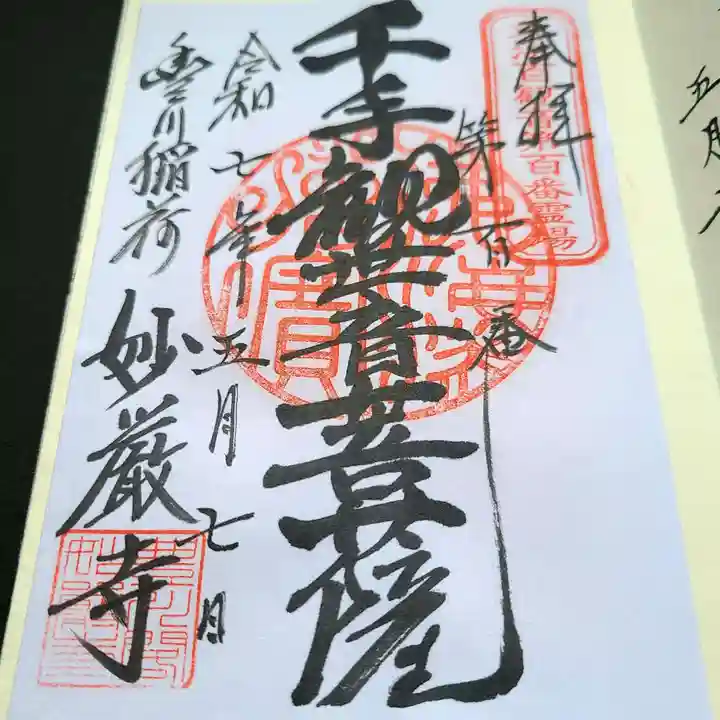 奉拝
第百番
百番霊場
千手観世音菩薩
令和七年五月七日
豊川稲荷
妙厳寺
五月